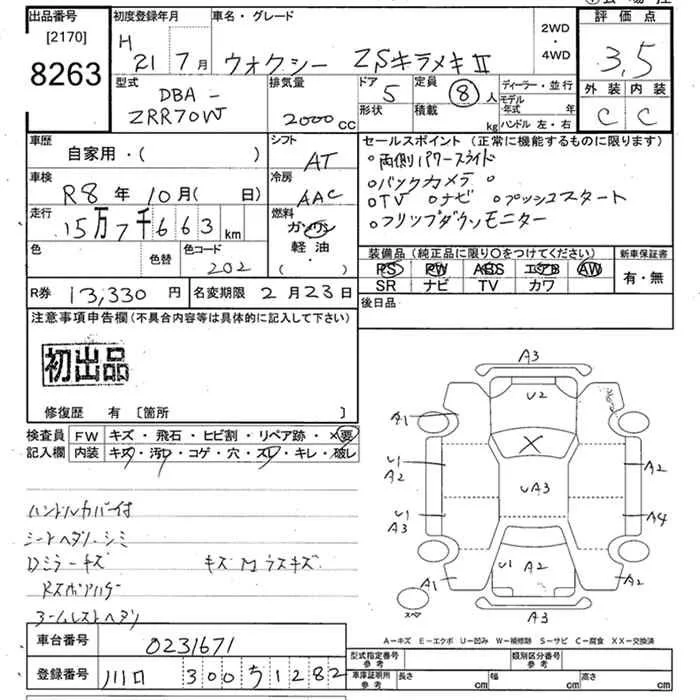 出品番号 初度登録年月 車名・グレード 2WD・4WD 評価点
[2170]
8263 H 21 7月 ヴォクシー ZSキラメキⅡ 3.5
外装 内装
C C
型式 DBA-ZRR70W 排気量 2000 cc ドア 5 形状 定員 8人 積載 kg ディーラー・並行 モデル年式 年 ハンドル 左・右
車歴 自家用・( ) シフト AT
車検 R8年10月( 日) 冷房 AAC
走行 15万7千663 km 燃料 ガソリン 軽油 ( )
色 色替 色コード 202
セールスポイント(正常に機能するものに限ります)
両側パワースライド
バックカメラ
TV ナビ プッシュスタート
フリップダウンモニター
装備品(純正品に限り○をつけてください) 新車保証書
PS PW ABS エアB AW 有・無
SR ナビ TV カワ
R券 13,330円 名変期限 2月23日 後日品
注意事項申告欄(不具合内容等は具体的に記入して下さい)
初出品
修復歴 有 [箇所 ]
検査員 FW キズ・飛石・ヒビ割・リペア跡・×要
記入欄 内装 キズ・汚レ・コゲ・穴・スレ・キレ・破レ
ハンドルカバー付
シートヘタリ・シミ
Dミラーキズ キズ Mウスキズ
アームレストヘタリ
A3
U2
A1
U1
A2
A2
UA3
U1
A3
A4
U1 A2
A1
A2
A3
A-キズ E-エクボ U-凹み W-補修跡 S-サビ C-腐食 XX-交換済
車台番号 0231671
登録番号 川口 300 ち 1282
型式指定番号 参考 類別区分番号 参考
車庫証明所 参考 長さ cm 幅 cm 高さ cm